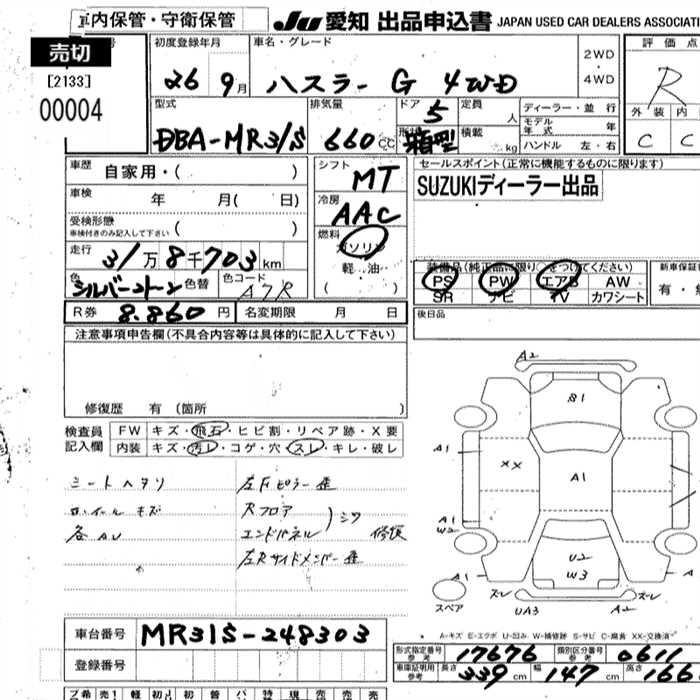 車内保管・守衛保管 JU 愛知 出品申込書 JAPAN USED CAR DEALERS ASSOCIATI
売切
[2133]
00004
初度登録年月 車名・グレード 評価点
26 9月 ハスラー G 4WD 2WD ・ 4WD R
型式 排気量 ドア 定員 ディーラー・並 行 外装 内
DBA-MR31S 660cc 5 人 モデル年式 年 C C
形状 箱型 積載 kg ハンドル 左・右
車歴 自家用・( ) シフト MT セールスポイント(正常に機能するものに限ります)
SUZUKIディーラー出品
車検 年 月( 日) 冷房 AAC
受検形態 ( )
車検付きのみ記入して下さい
燃料 ガソリン
軽・油
( )
走行 31万8千703km
色 シルバー2トーン 色替 色コード A7R
装備品(純正品に限り○をつけてください) 新車保証
PS PW エアB AW 有・無
SR ナビ TV カワシート
R券 8.860円 名変期限 月 日 後日品
注意事項申告欄(不具合内容等は具体的に記入して下さい)
修復歴 有 (箇所 )
検査員記入欄 FW キズ・飛石・ヒビ割・リペア跡・X要
内装 キズ・汚レ・コゲ・穴・スレ・キレ・破レ
シートヘタリ 左Fピラー歪
ホイールキズ Rフロア
各AU エンドパネル )シワ 修復
左Rサイドメンバー歪
A2
B1
A1 XX A1
A1
W2
U2
W3
A1 スレ スレ A
スペア UA3 A2
A-キズ E-エクボ U-凹み W-補修跡 S-サビ C-腐食 XX-交換済
車台番号 MR31S-248303
登録番号
形式指定番号 参考 17676 類別区分番号 参考 0611
車庫証明用 参考 長さ 339cm 幅 147cm 高さ 166